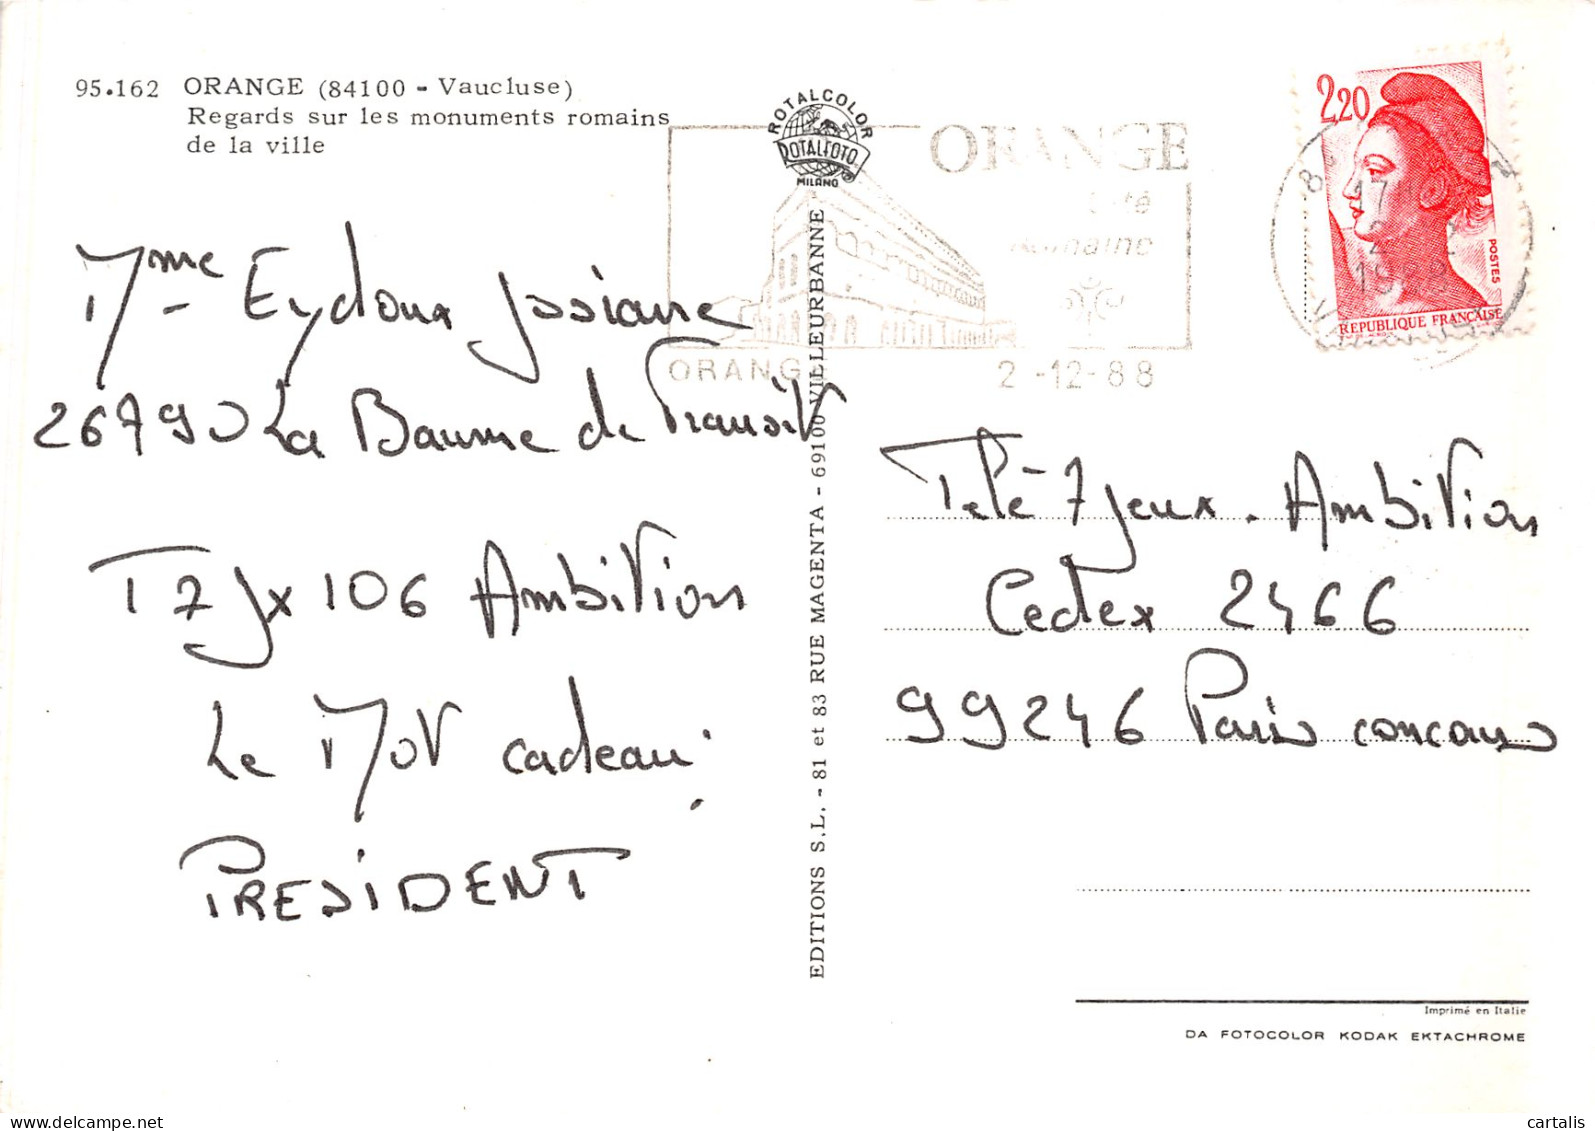 95.162 ORANGE (84100 - Vaucluse)
Regards sur les monuments romains
de la ville
ROTALCOLOR
ROTALFOTO
MILANO
ORANGE
ORANGE
2 -12-88
2,20
POSTES
REPUBLIQUE FRANÇAISE
Mme Eydoux Josiane
26790 La Baume de Transit
T 7 Jx 106 Ambition
Le Mot cadeau :
PRESIDENT
EDITIONS S.L. - 81 et 83 RUE MAGENTA - 69100 VILLEURBANNE
Télé 7 Jeux . Ambition
Cedex 2466
99246 Paris concours
Imprimé en Italie
DA FOTOCOLOR KODAK EKTACHROME
cartalis